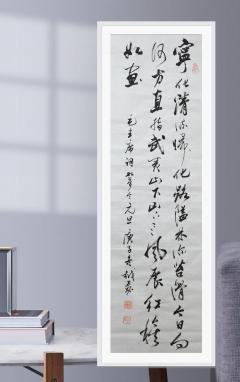 寧化清流歸化路隘林深苔滑今日向
何方直指武夷山下山下〻〻風展紅旗
如画
毛主席詞 如夢令 元旦 庚子